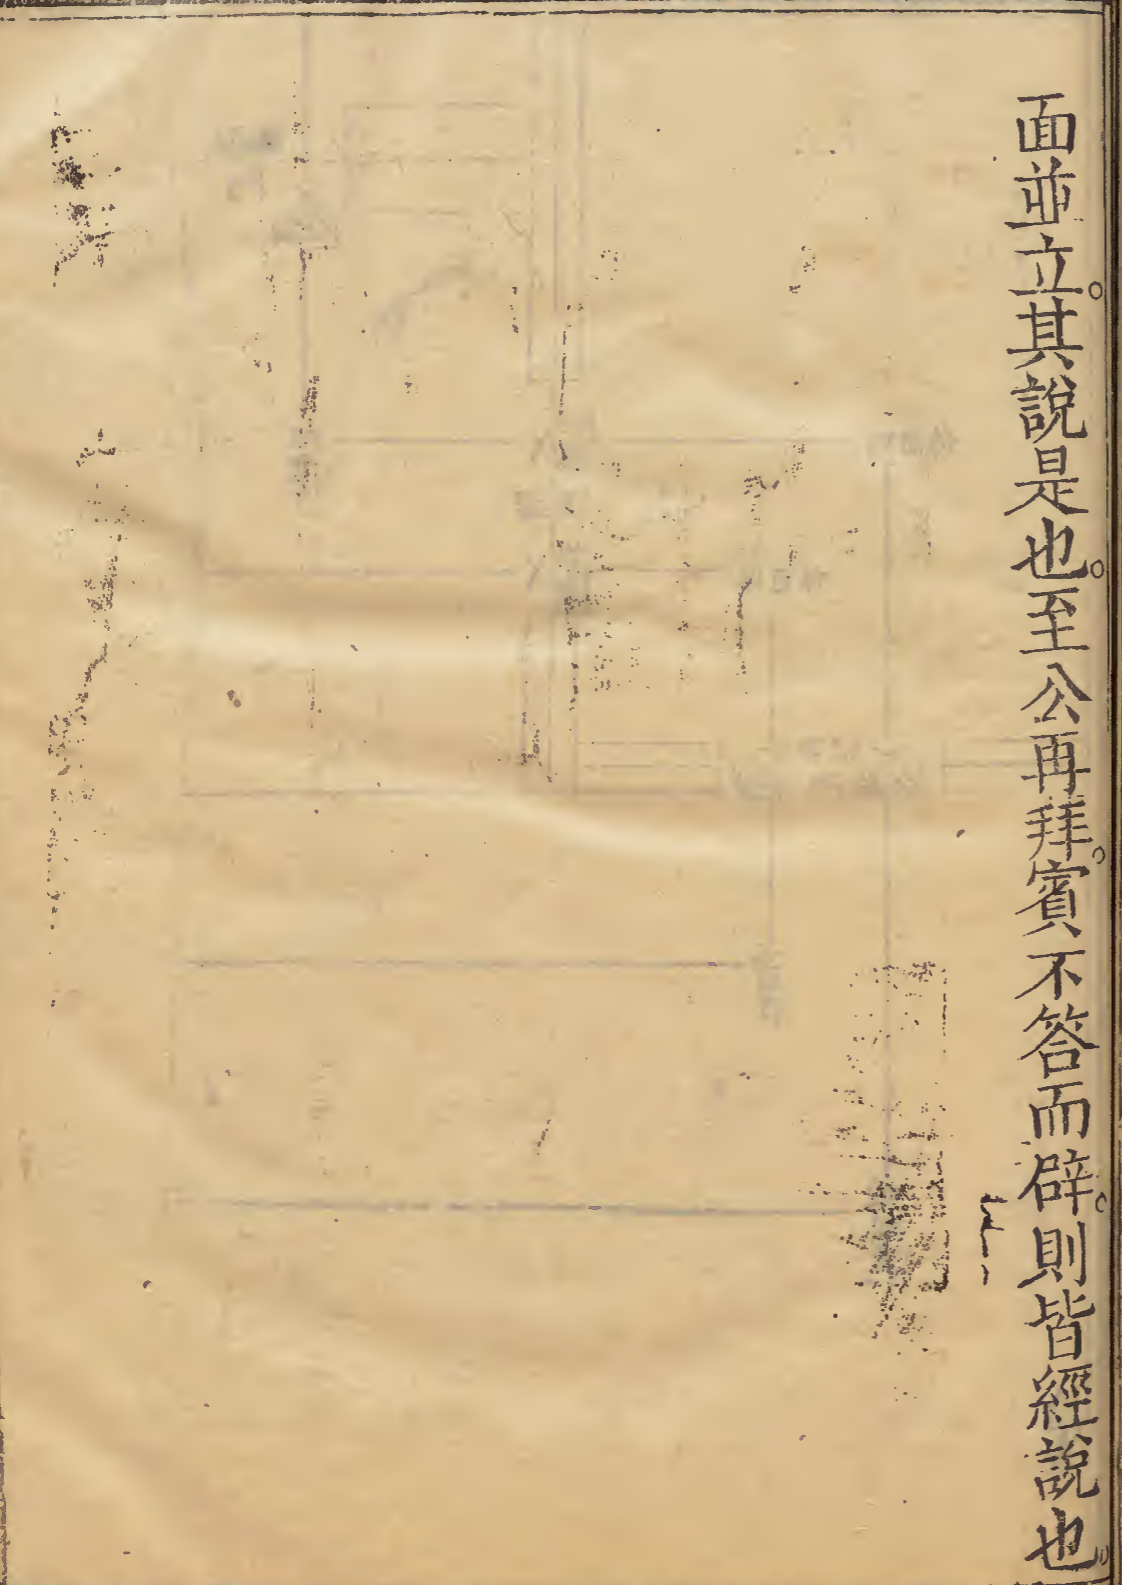 面並立其說是也至公再拜賓不答而辟則皆經說也